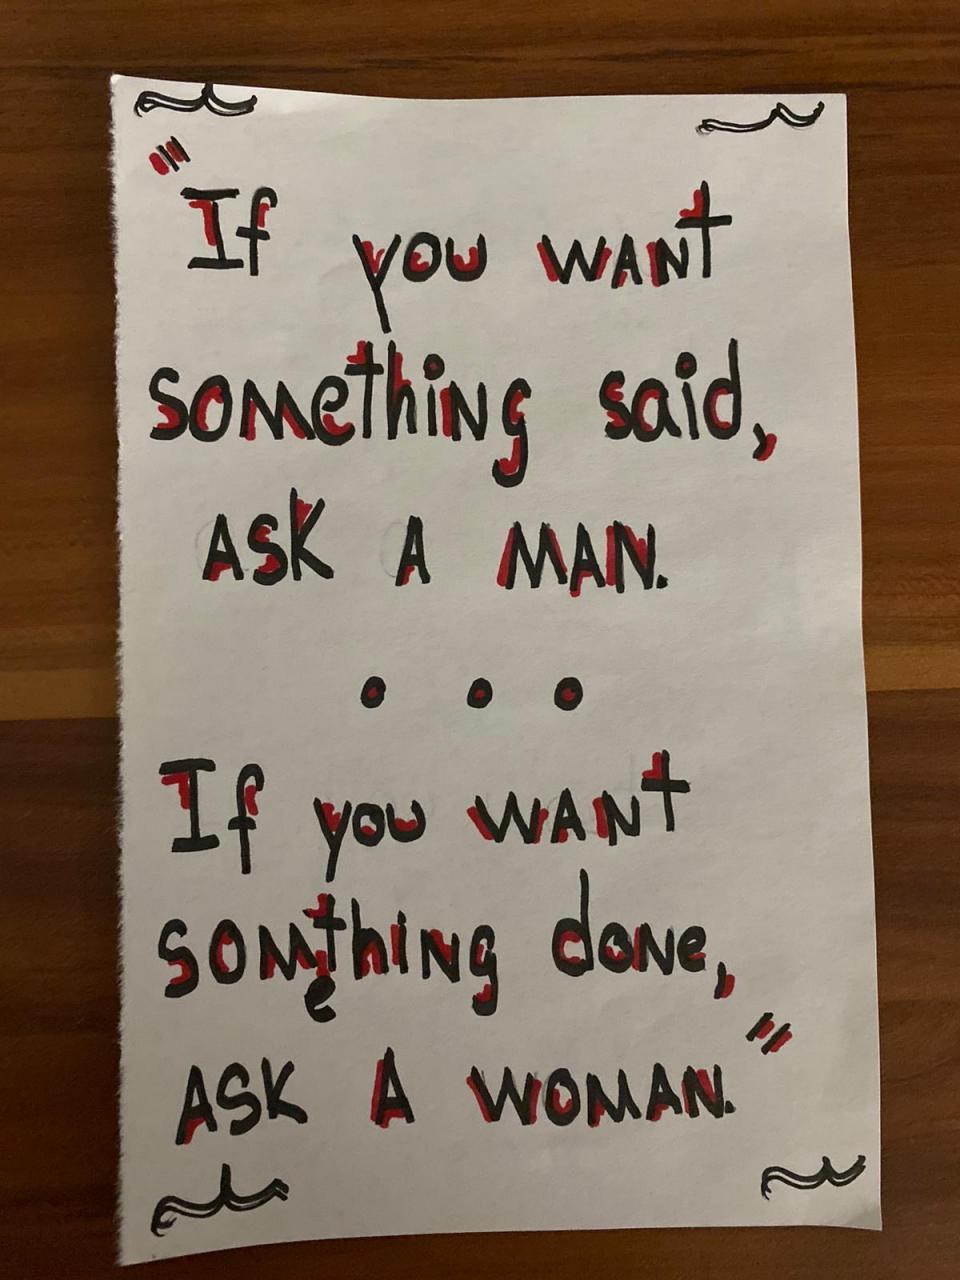 "If you want
something said,
ASK A MAN.
• • •
If you want
something done,
ASK A WOMAN."